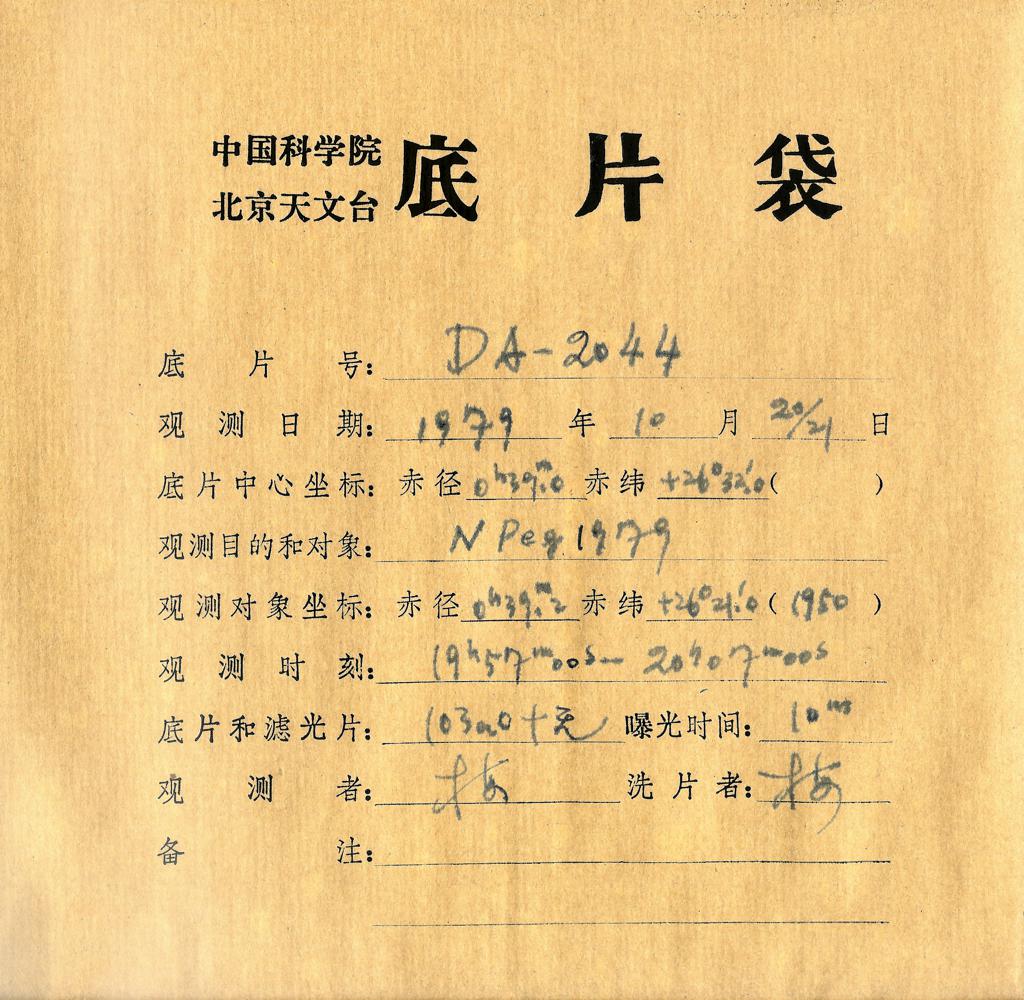 中国科学院
北京天文台
底片袋
底片号: DA-2044
观测日期: 1979 年 10 月 20/21 日
底片中心坐标: 赤径 0ʰ39ᵐ.0 赤纬 +26°32'.0 ( )
观测目的和对象: N Peg 1979
观测对象坐标: 赤径 0ʰ39ᵐ.2 赤纬 +26°21'.0 (1950)
观测时刻: 19ʰ57ᵐ00ˢ— 20ʰ07ᵐ00ˢ
底片和滤光片: 103aO+无 曝光时间: 10ᵐ
观测者: 梅 洗片者: 梅
备注: